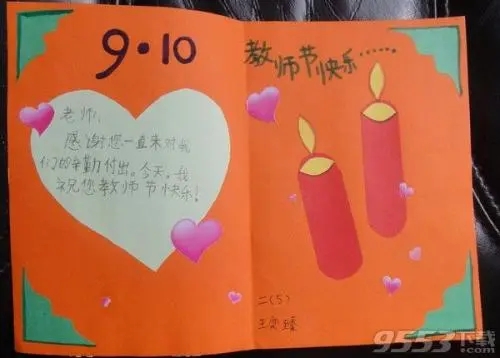 9·10
老师,
感谢您一直来对我
们的辛勤付出。今天,我
祝您教师节快乐!
教师节快乐……
二(5)
9553下载
.com